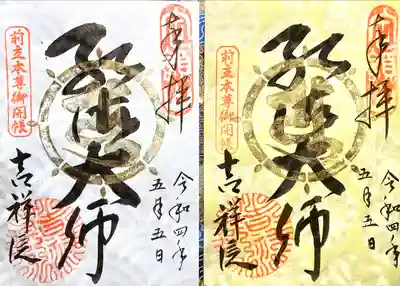 奉拝
弘法大師
令和四年
五月五日
前立本尊御開帳
吉祥院
奉拝
弘法大師
令和四年
五月五日
前立本尊御開帳
吉祥院